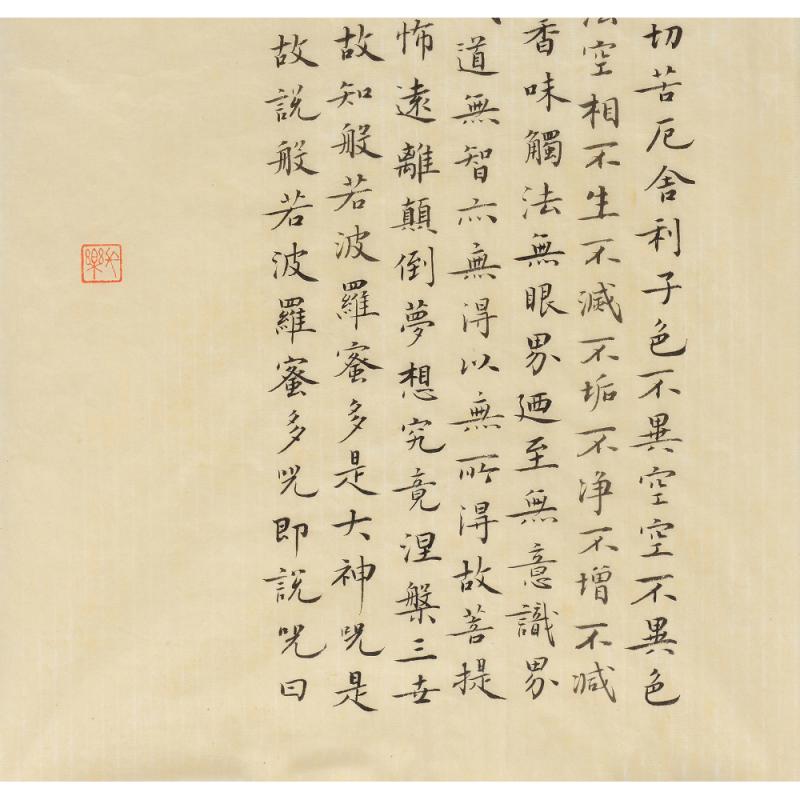 切苦厄舍利子色不異空空不異色
法空相不生不滅不垢不净不增不減
香味觸法無眼界廼至無意識界
道無智亦無得以無所得故菩提
怖遠離顛倒夢想究竟涅槃三世
故知般若波羅蜜多是大神呪是
故說般若波羅蜜多呪即說呪曰